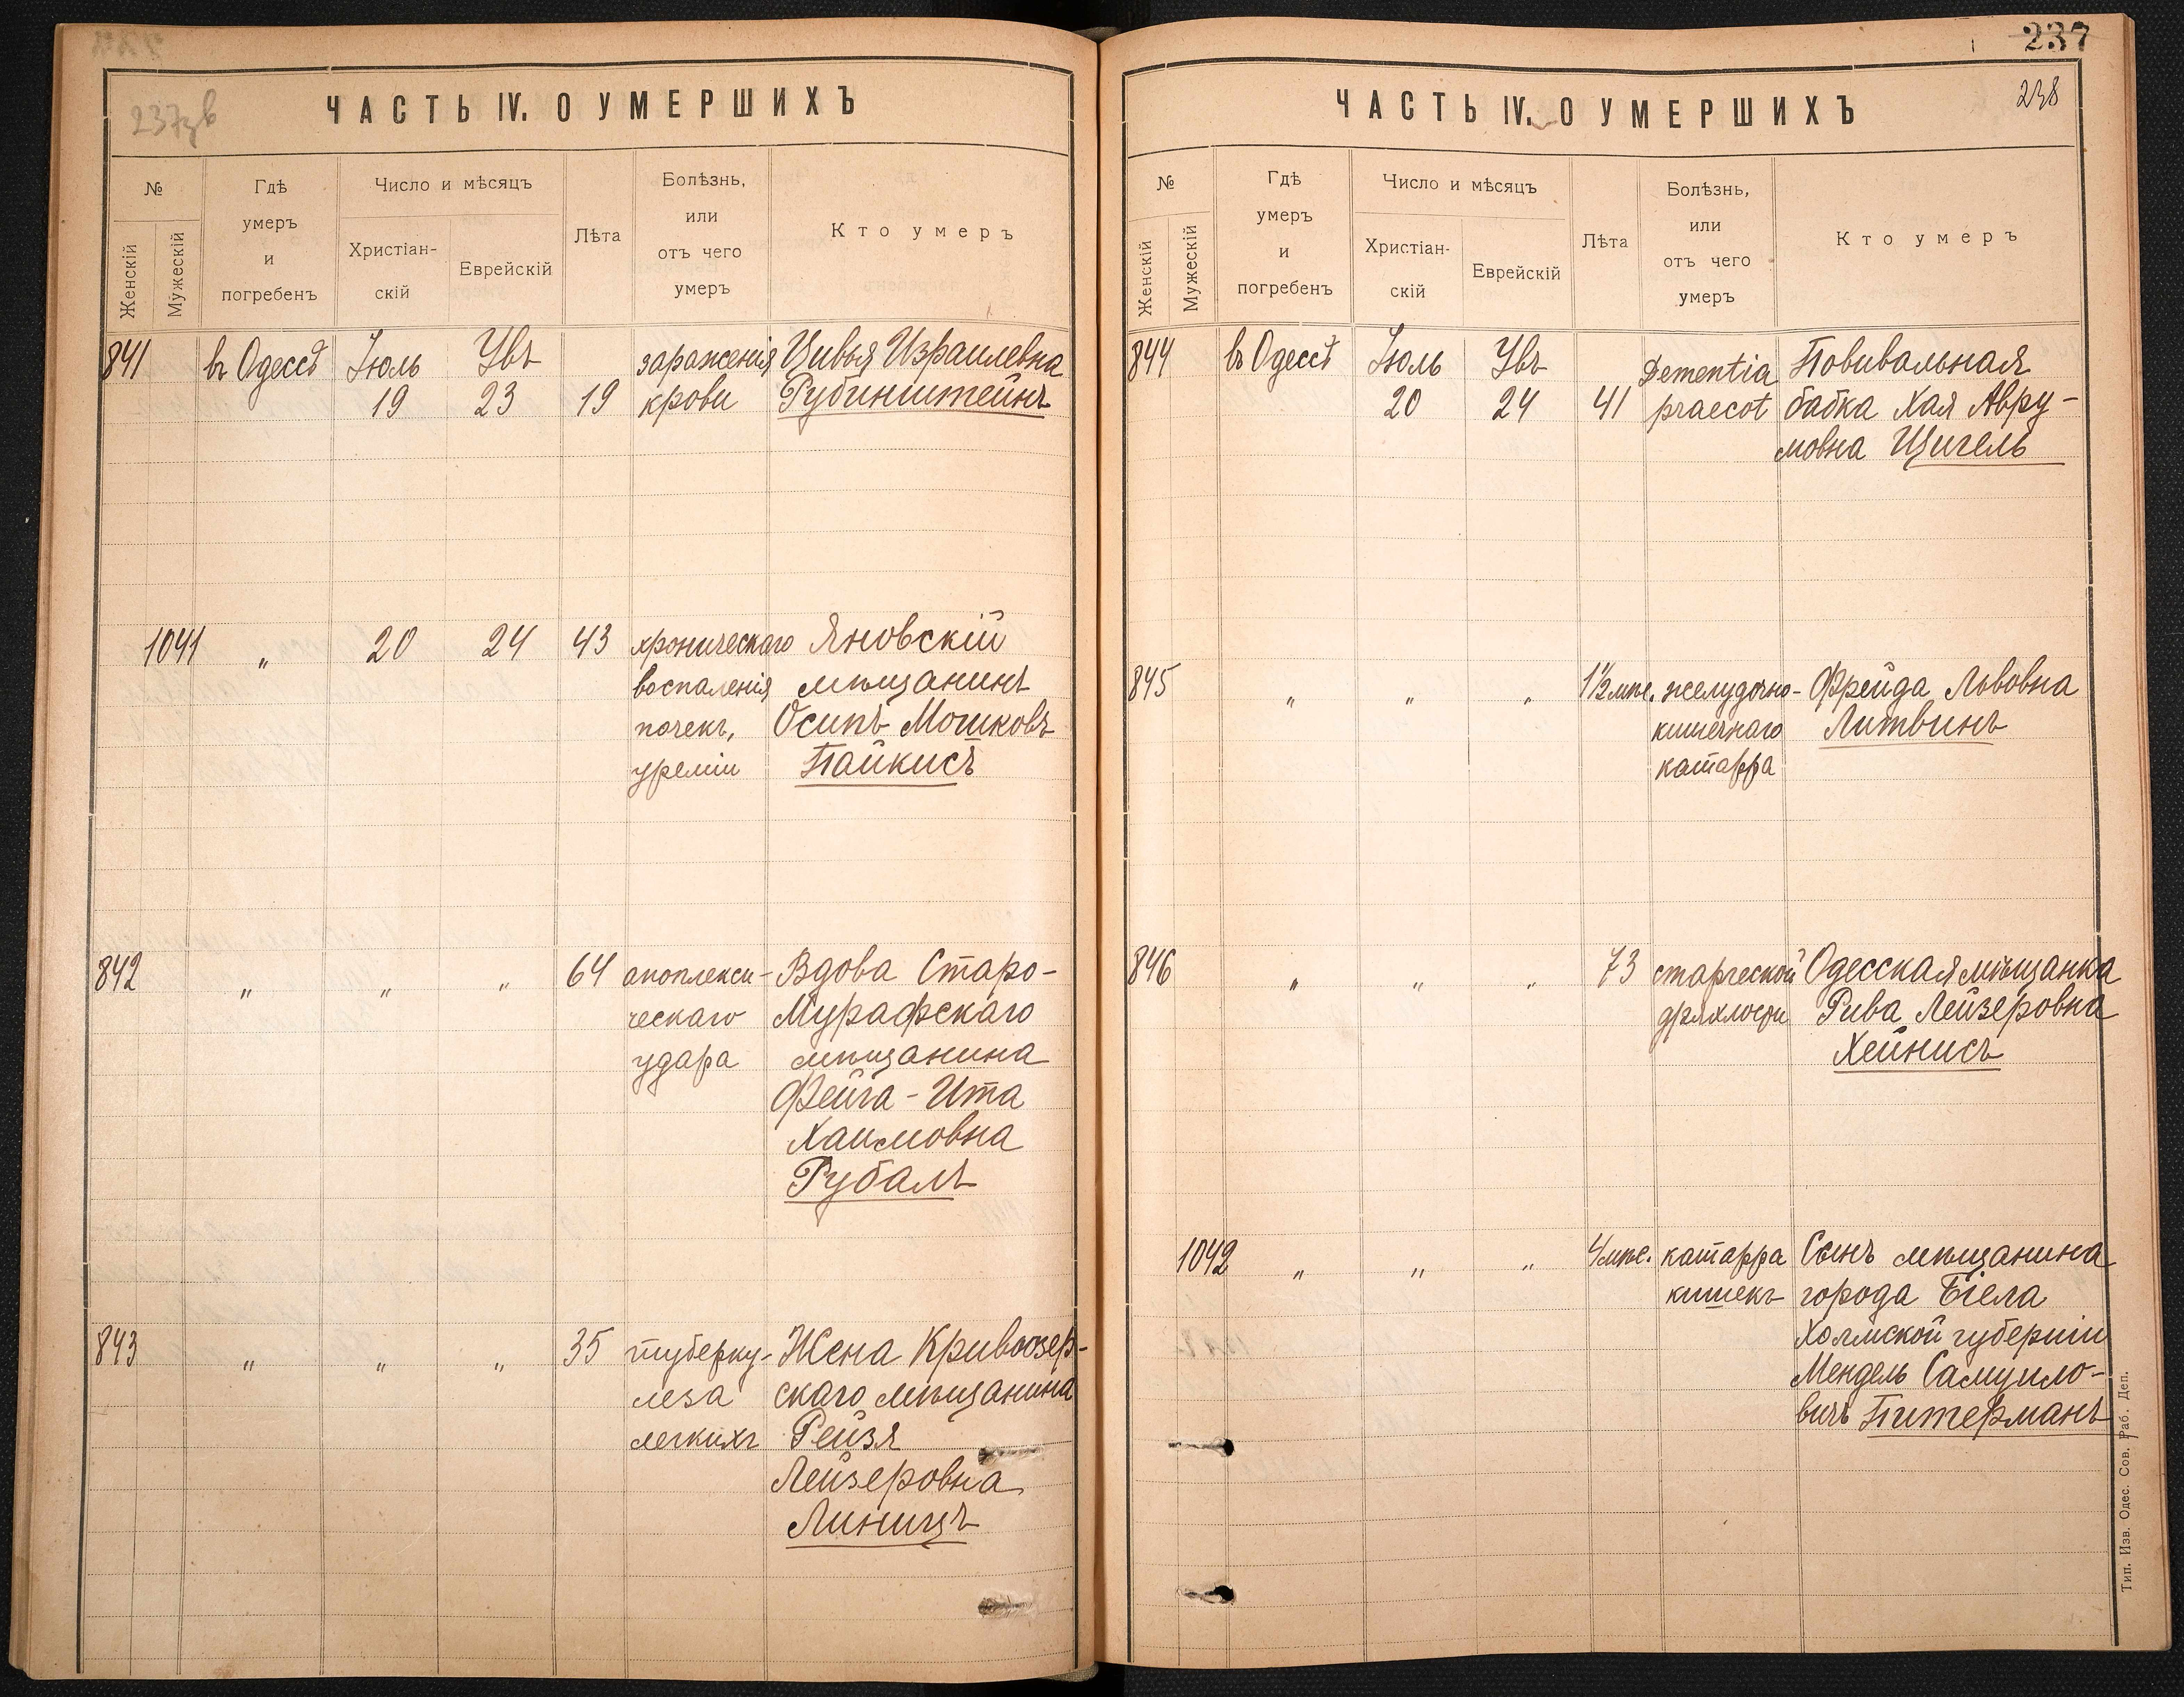 237
237зв
ЧАСТЬ IV. О УМЕРШИХЪ
№
Женскій
Мужескій
Гдѣ
умеръ
и
погребенъ
Число и мѣсяцъ
Христіан-
скій
Еврейскій
Лѣта
Болѣзнь,
или
отъ чего
умеръ
Кто умеръ
841 въ Одессѣ Іюль Увъ зараженія Цивья Израилевна
19 23 19 крови Рубинштейнъ
1041 „ 20 24 43 хроническаго Яновскій
воспаленія мѣщанинъ
почекъ, Осипъ Мошковъ
уреміи Пайкисъ
842 „ „ „ 64 апоплекси- Вдова Старо-
ческаго Мурафскаго
удара мѣщанина
Фейга-Ита
Хаимовна
Рубалъ
843 „ „ „ 35 туберку- Жена Кривоозер-
леза скаго мѣщанина
легкихъ Рейзя
Лейзеровна
Линицъ
238
ЧАСТЬ IV. О УМЕРШИХЪ
№
Женскій
Мужескій
Гдѣ
умеръ
и
погребенъ
Число и мѣсяцъ
Христіан-
скій
Еврейскій
Лѣта
Болѣзнь,
или
отъ чего
умеръ
Кто умеръ
844 въ Одессѣ Іюль Увъ Dementia Повивальная
20 24 41 praecot бабка Хая Авру-
мовна Цигель
845 „ „ „ 1½ мѣс. желудочно- Фрейда Львовна
кишечнаго Литвинъ
катарра
846 „ „ „ 73 старческой Одесская мѣщанка
дряхлости Рива Лейзеровна
Хейнисъ
1042 „ „ „ 4 мѣс. катарра Сынъ мѣщанина
кишекъ города Бѣла
Холмской губерніи
Мендель Самуило-
вичъ Питерманъ
Тип. Изв. Одес. Сов. Раб. Деп.